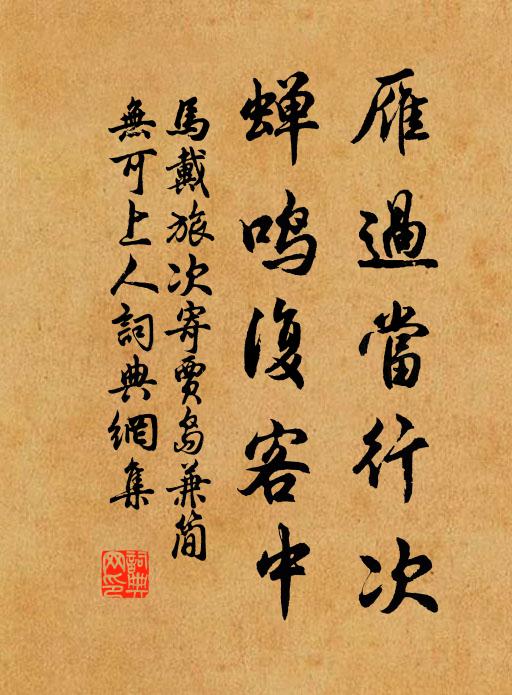 雁過當行次
蝉鸣復客中
馬戴旅次寄賈島兼简
無可上人詞典網集
詞典网印